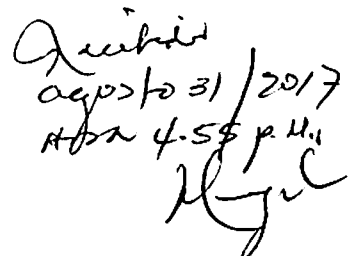 Recibido
agosto 31/2017
Hora 4.55 p.M.